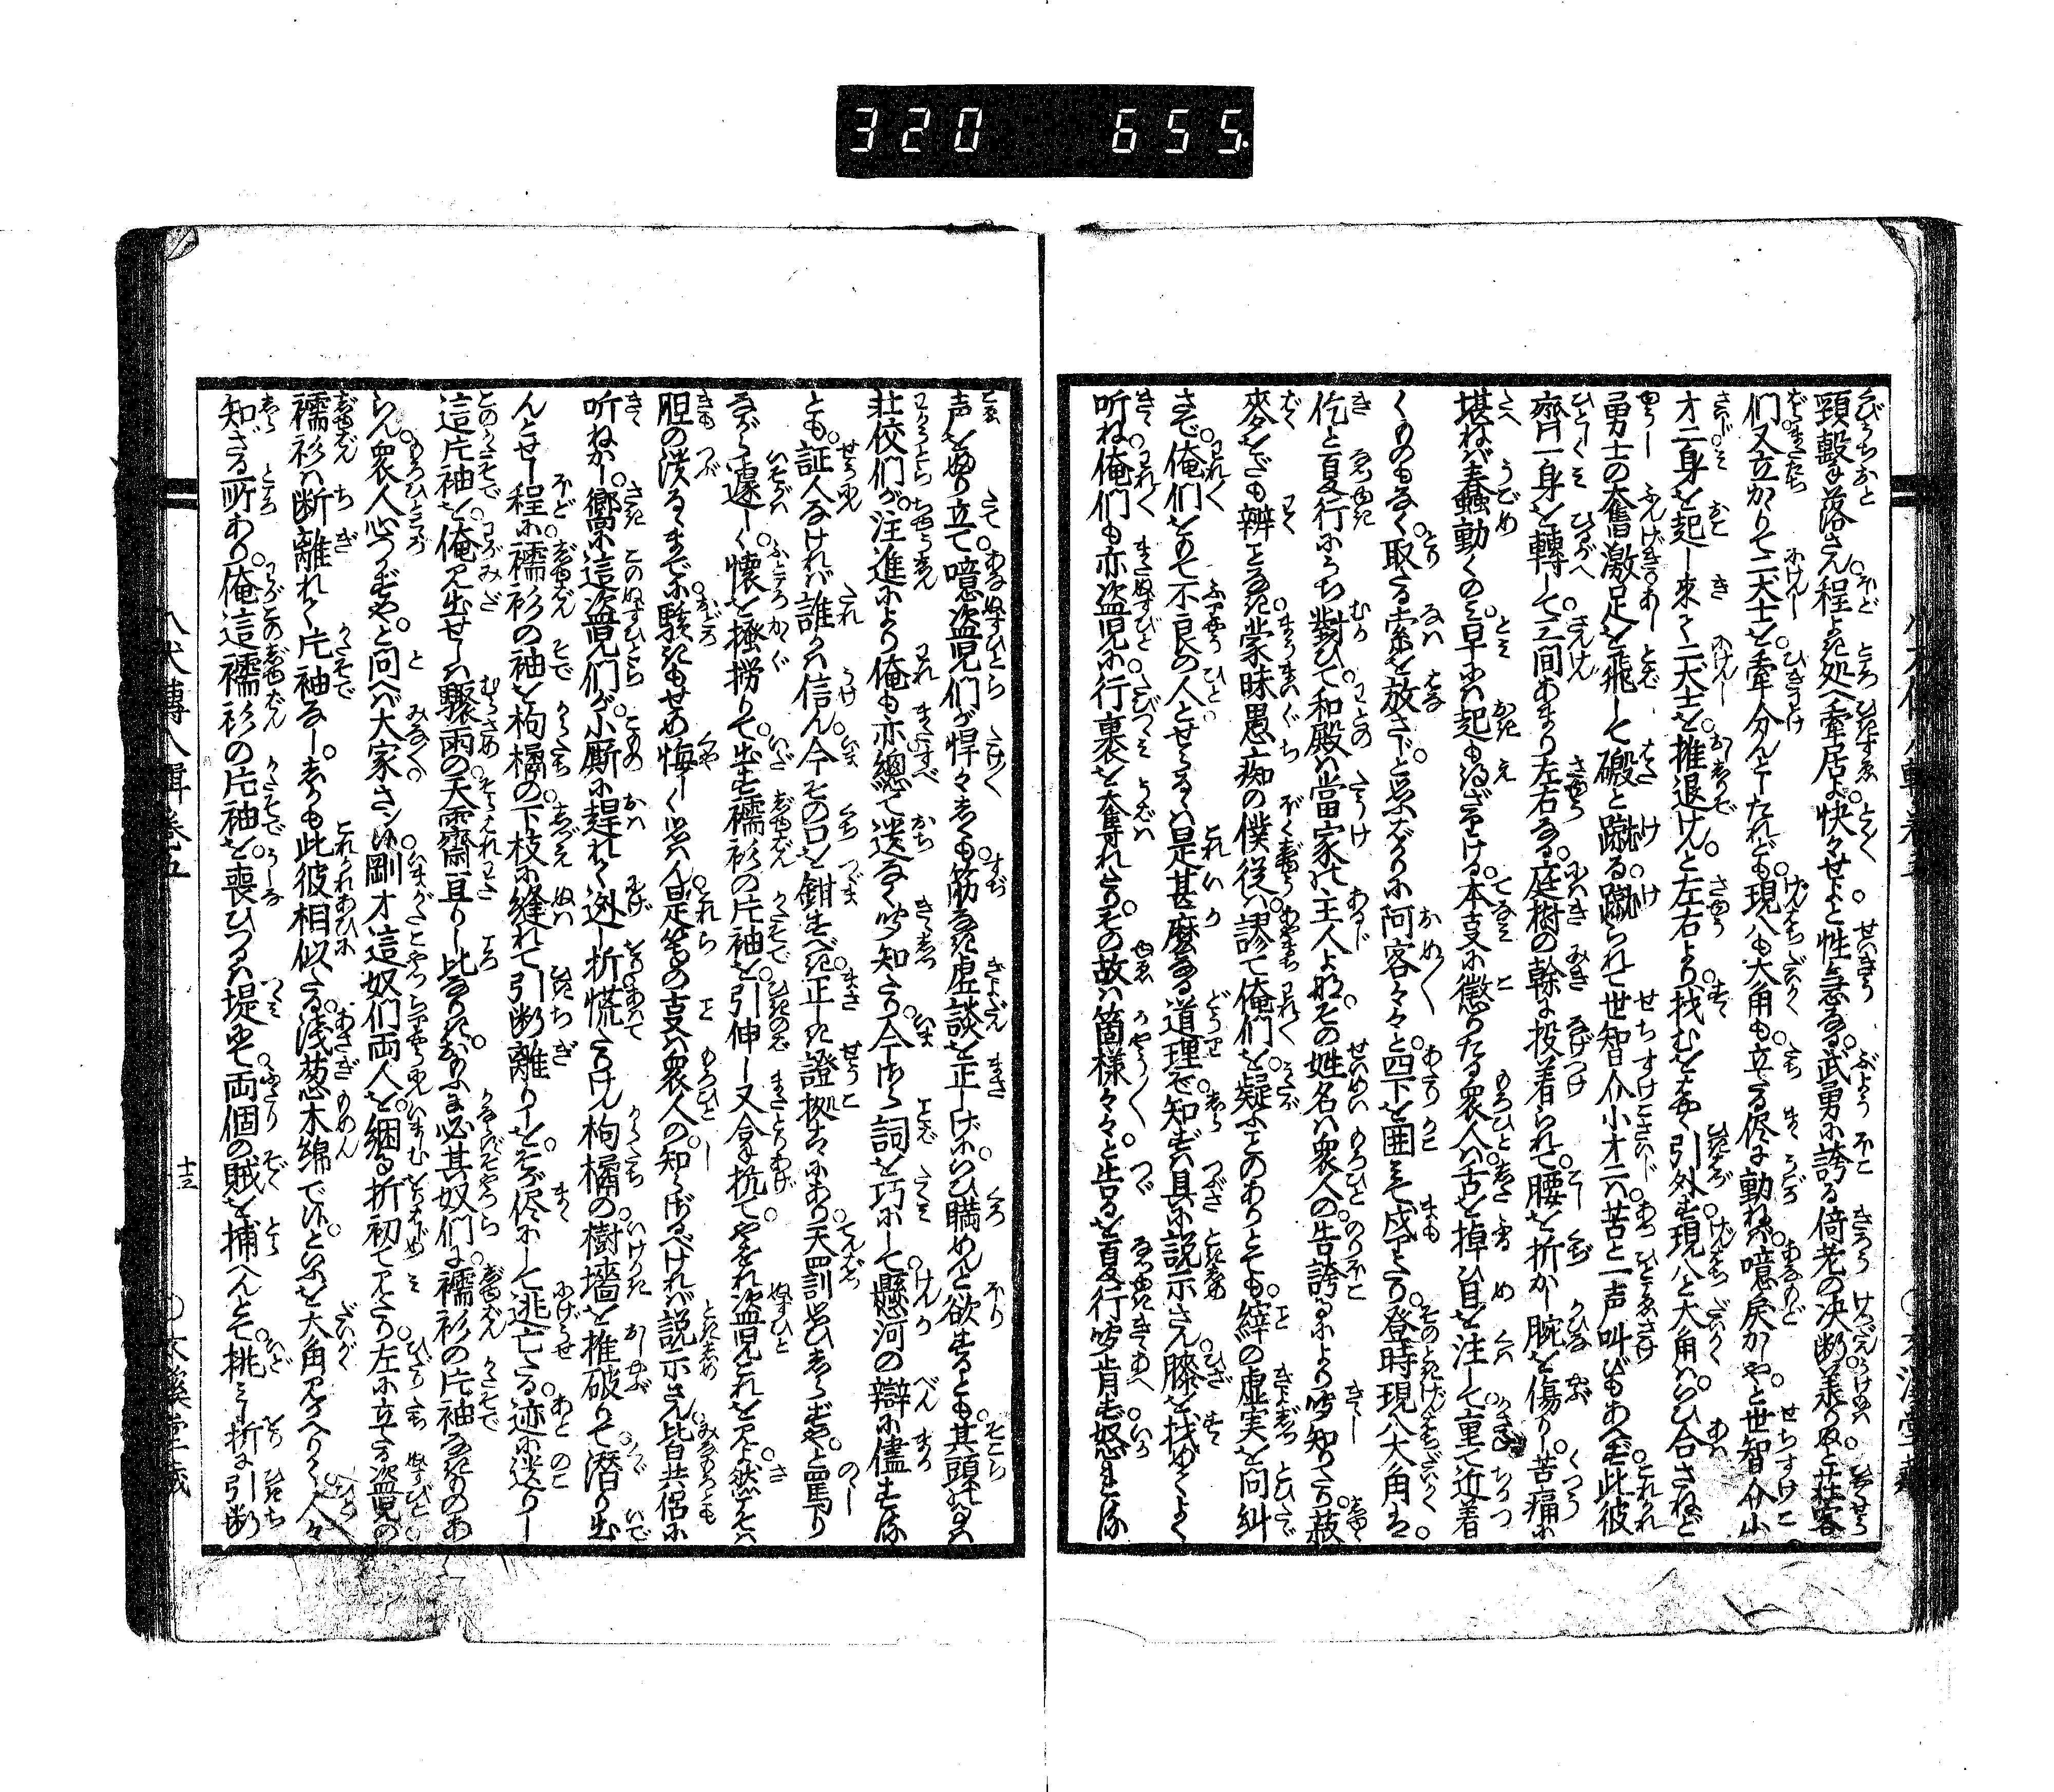 320 655
頸轂を落さん程よき処へ牽居よ快々せよと性急なる。武勇に誇る倚老の决断義承りぬと荘客
們又立かゝりて二犬士を牽分んとしたれども現八も大角も立たる侭に動ねば噫戻かしやと世智介小
才二身を起し来て二犬士を推退けんと左右より找むをはやく引外す現八と大角はいひ合さねど
勇士の奮激足を飛して礑と蹴る蹴られて世智介小才二ハ苦と一声叫びもあへず此彼
齊一身を轉して三間あまり左右なる庭樹の幹に投着られて腰を折かし腕を傷りし苦痛に
堪ねば春蟲動くのミ早には起も得ざりける。本事に懲りたる衆人ハ舌を掉ひ目を注して重て近着
くものもなく取たる索を放さじと思ふばかりに阿容々々と四下を囲ミて戍てをり。登時現八大角は
佶と夏行にうち對ひて和殿ハ當家の主人よな。その姓名ハ衆人の告誇るにより聞知りてをり菽
麥をだも辨えなき蒙昧愚痴の僕従ハ謬て俺們を疑ふことのありとても縡の虚実を問糾
さで俺們をもて不良の人とせらるゝは是甚麼なる道理ぞや知ずハ具に説示さん膝を找めてよく
听ね俺們も亦盗児に行裹を奪れたり。その故ハ箇様々々と告るを夏行聞肯ず怒れる
声をふり立て噫盗児們が悍々しくも筋なき虚談を正しげにいひ瞞めんと欲するとも其頭ハ
壮佼們が注進により俺も亦總て送なく聞知たり今さら詞を巧にして懸河の辯に儘すとも
とも証人なければ誰かは信ん今その口を鉗すべき正しき證拠こゝにあり天罰思ひしらずやと罵り
ながら遽しく懐を掻撈りて出す襦衫の片袖を引伸し又合し抗てやをれ盗児これを見よ然でも
胆の潰るゝまでに駭きもせめ悔しく思はん是等の事ハ衆人の知らざるべければ説示さん皆共侶に
听ねかし嚮に這盗児們が小厮に趕れて迯し折慌たりけん枸橘の樹墻を推破りて潜り出
んとせし程に襦衫の袖を枸橘の下枝に縫れて引断離りしを其が侭にして逃亡たる迹に送りし
這片袖を俺見出せしハ驟雨の天霽亘りし比なりき。かゝれば必其奴們に襦衫の片袖なきのあ
らん衆人心つかずやと問へば大家さン候剛才這奴們両人を綑る折初て見たり左に立たる盗児の
襦衫ハ断離れて片袖なし。しかも此彼相似たる浅葱木綿で候といふを大角見かへりて人々
知ざる所あり。俺這襦衫の片袖を喪ひつるハ堤にて両個の賊を捕へんとて挑ミし折に引断
十三